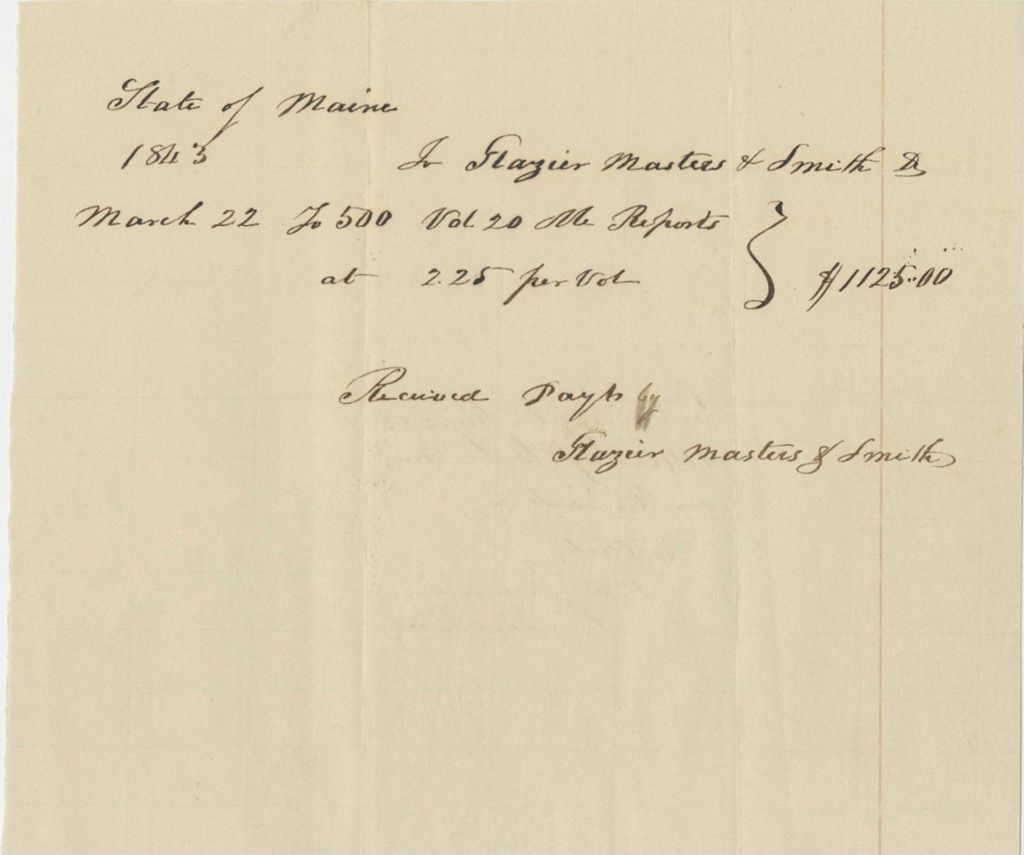 State of Maine
1843 To Glazier Masters & Smith Dr
March 22 To 500 Vol 20 Me Reports
at 2.25 per Vol } $1125.00
Received Payt by
Glazier Masters & Smith